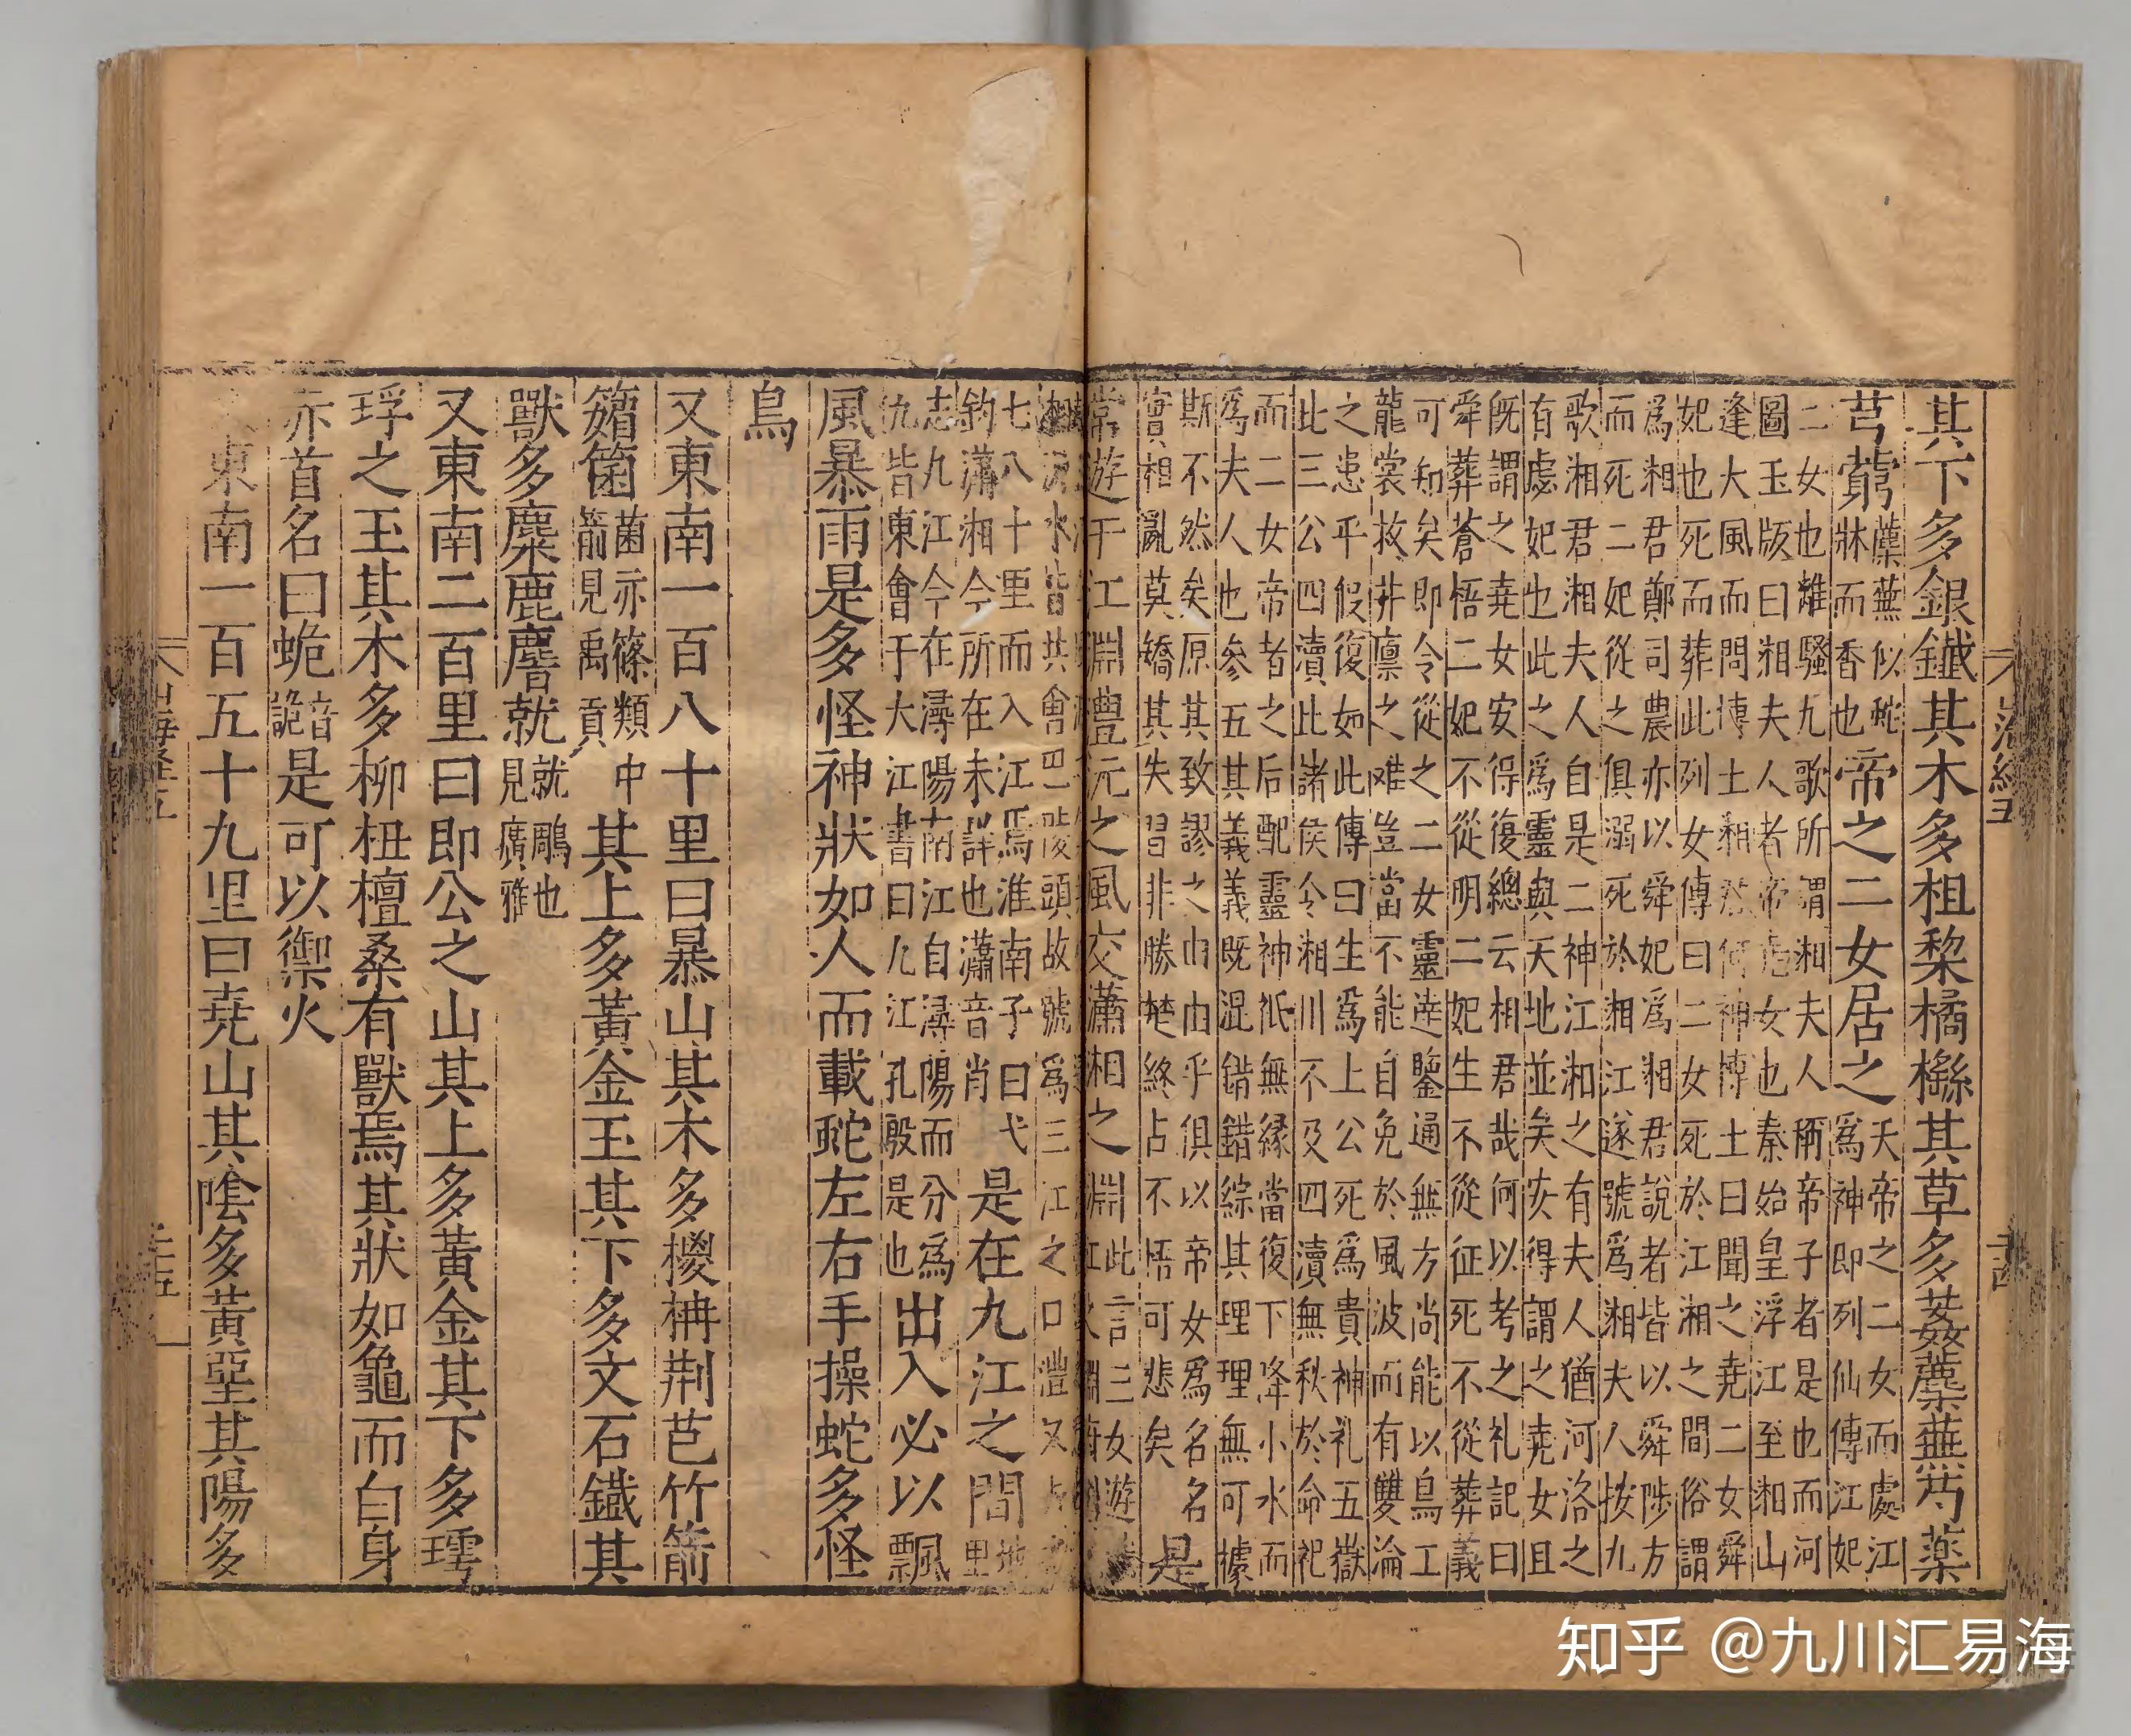 其下多銀鐵其木多柤棃橘櫾其草多葌蘪蕪芍藥
芎藭蘪蕪似虵牀而香也帝之二女居之天帝之二女而處江爲神即列仙傳江妃
二女也離騷九歌所謂湘夫人稱帝子者是也而河
圖玉版曰湘夫人者帝堯女也秦始皇浮江至湘山
逢大風而問博士湘君何神博士曰聞之堯二女舜
妃也死而葬此列女傳曰二女死於江湘之間俗謂
爲湘君鄭司農亦以舜妃爲湘君說者皆以舜陟方
而死二妃從之俱溺死於湘江遂號爲湘夫人按九
歌湘君湘夫人自是二神江湘之有夫人猶河洛之
有虙妃也此之爲靈與天地並矣安得謂之堯女且
旣謂之堯女安得復總云湘君哉何以考之礼記曰
舜葬蒼梧二妃不從明二妃生不從征死不從葬義
可知矣即令從之二女靈達鑒通無方尚能以鳥工
龍裳救井廩之难豈當不能自免於風波而有雙淪
之患乎假復如此傳曰生爲上公死爲貴神礼五嶽
此三公四瀆此諸侯今湘川不及四瀆無秩於命祀
而二女帝者之后配靈神祇無緣當復下降小水而
爲夫人也參五其義義既混錯錯綜其理理無可據
斯不然矣原其致謬之由由乎俱以帝女爲名名
實相亂莫矯其失習非勝楚終古不悟可悲矣是
常遊于江淵澧沅之風交瀟湘之淵此言三女遊
水皆共會巴陵頭故號爲三江之口澧又
七八十里而入江焉淮南子曰弋
釣瀟湘今所在未詳也瀟音肖是在九江之間地里
志九江今在潯陽南江自潯陽而分爲
九皆東會于大江書曰九江孔殷是也出入必以飄
風暴雨是多怪神狀如人而載蛇左右手操蛇多怪
鳥
又東南一百八十里曰暴山其木多椶枏荆芑竹箭
䉋箘箘亦篠類中箭見禹貢其上多黃金玉其下多文石鐵其
獸多麋鹿麕就就鵰也見廣雅
又東南二百里曰即公之山其上多黃金其下多㻬
琈之玉其木多柳杻檀桑有獸焉其狀如龜而白身
赤首名曰蛫音詭是可以禦火
東南一百五十九里曰堯山其陰多黃堊其陽多
山海經五
知乎 @九川汇易海